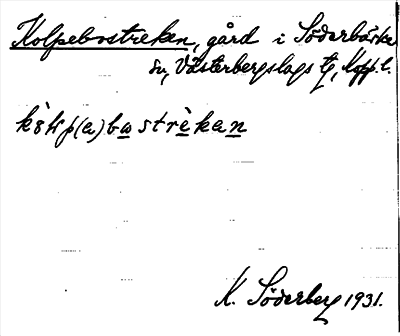 Kolpebostreken, gård i Söderbärke
sn, Västerbergslags tg, Kopp. l.
kòlp(a)bostrèkan
K. Söderberg 1931.